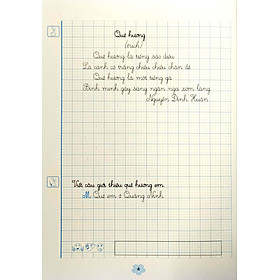 Quê hương
(trích)
Quê hương là tiếng sáo diều
Là cánh cò trắng chiều chiều chân đê
Quê hương là một tiếng gà
Bình minh gáy sáng ngân nga xóm làng
Nguyễn Đình Huân
Viết câu giới thiệu quê hương em.
M: Quê em ở Quảng Ninh.
4